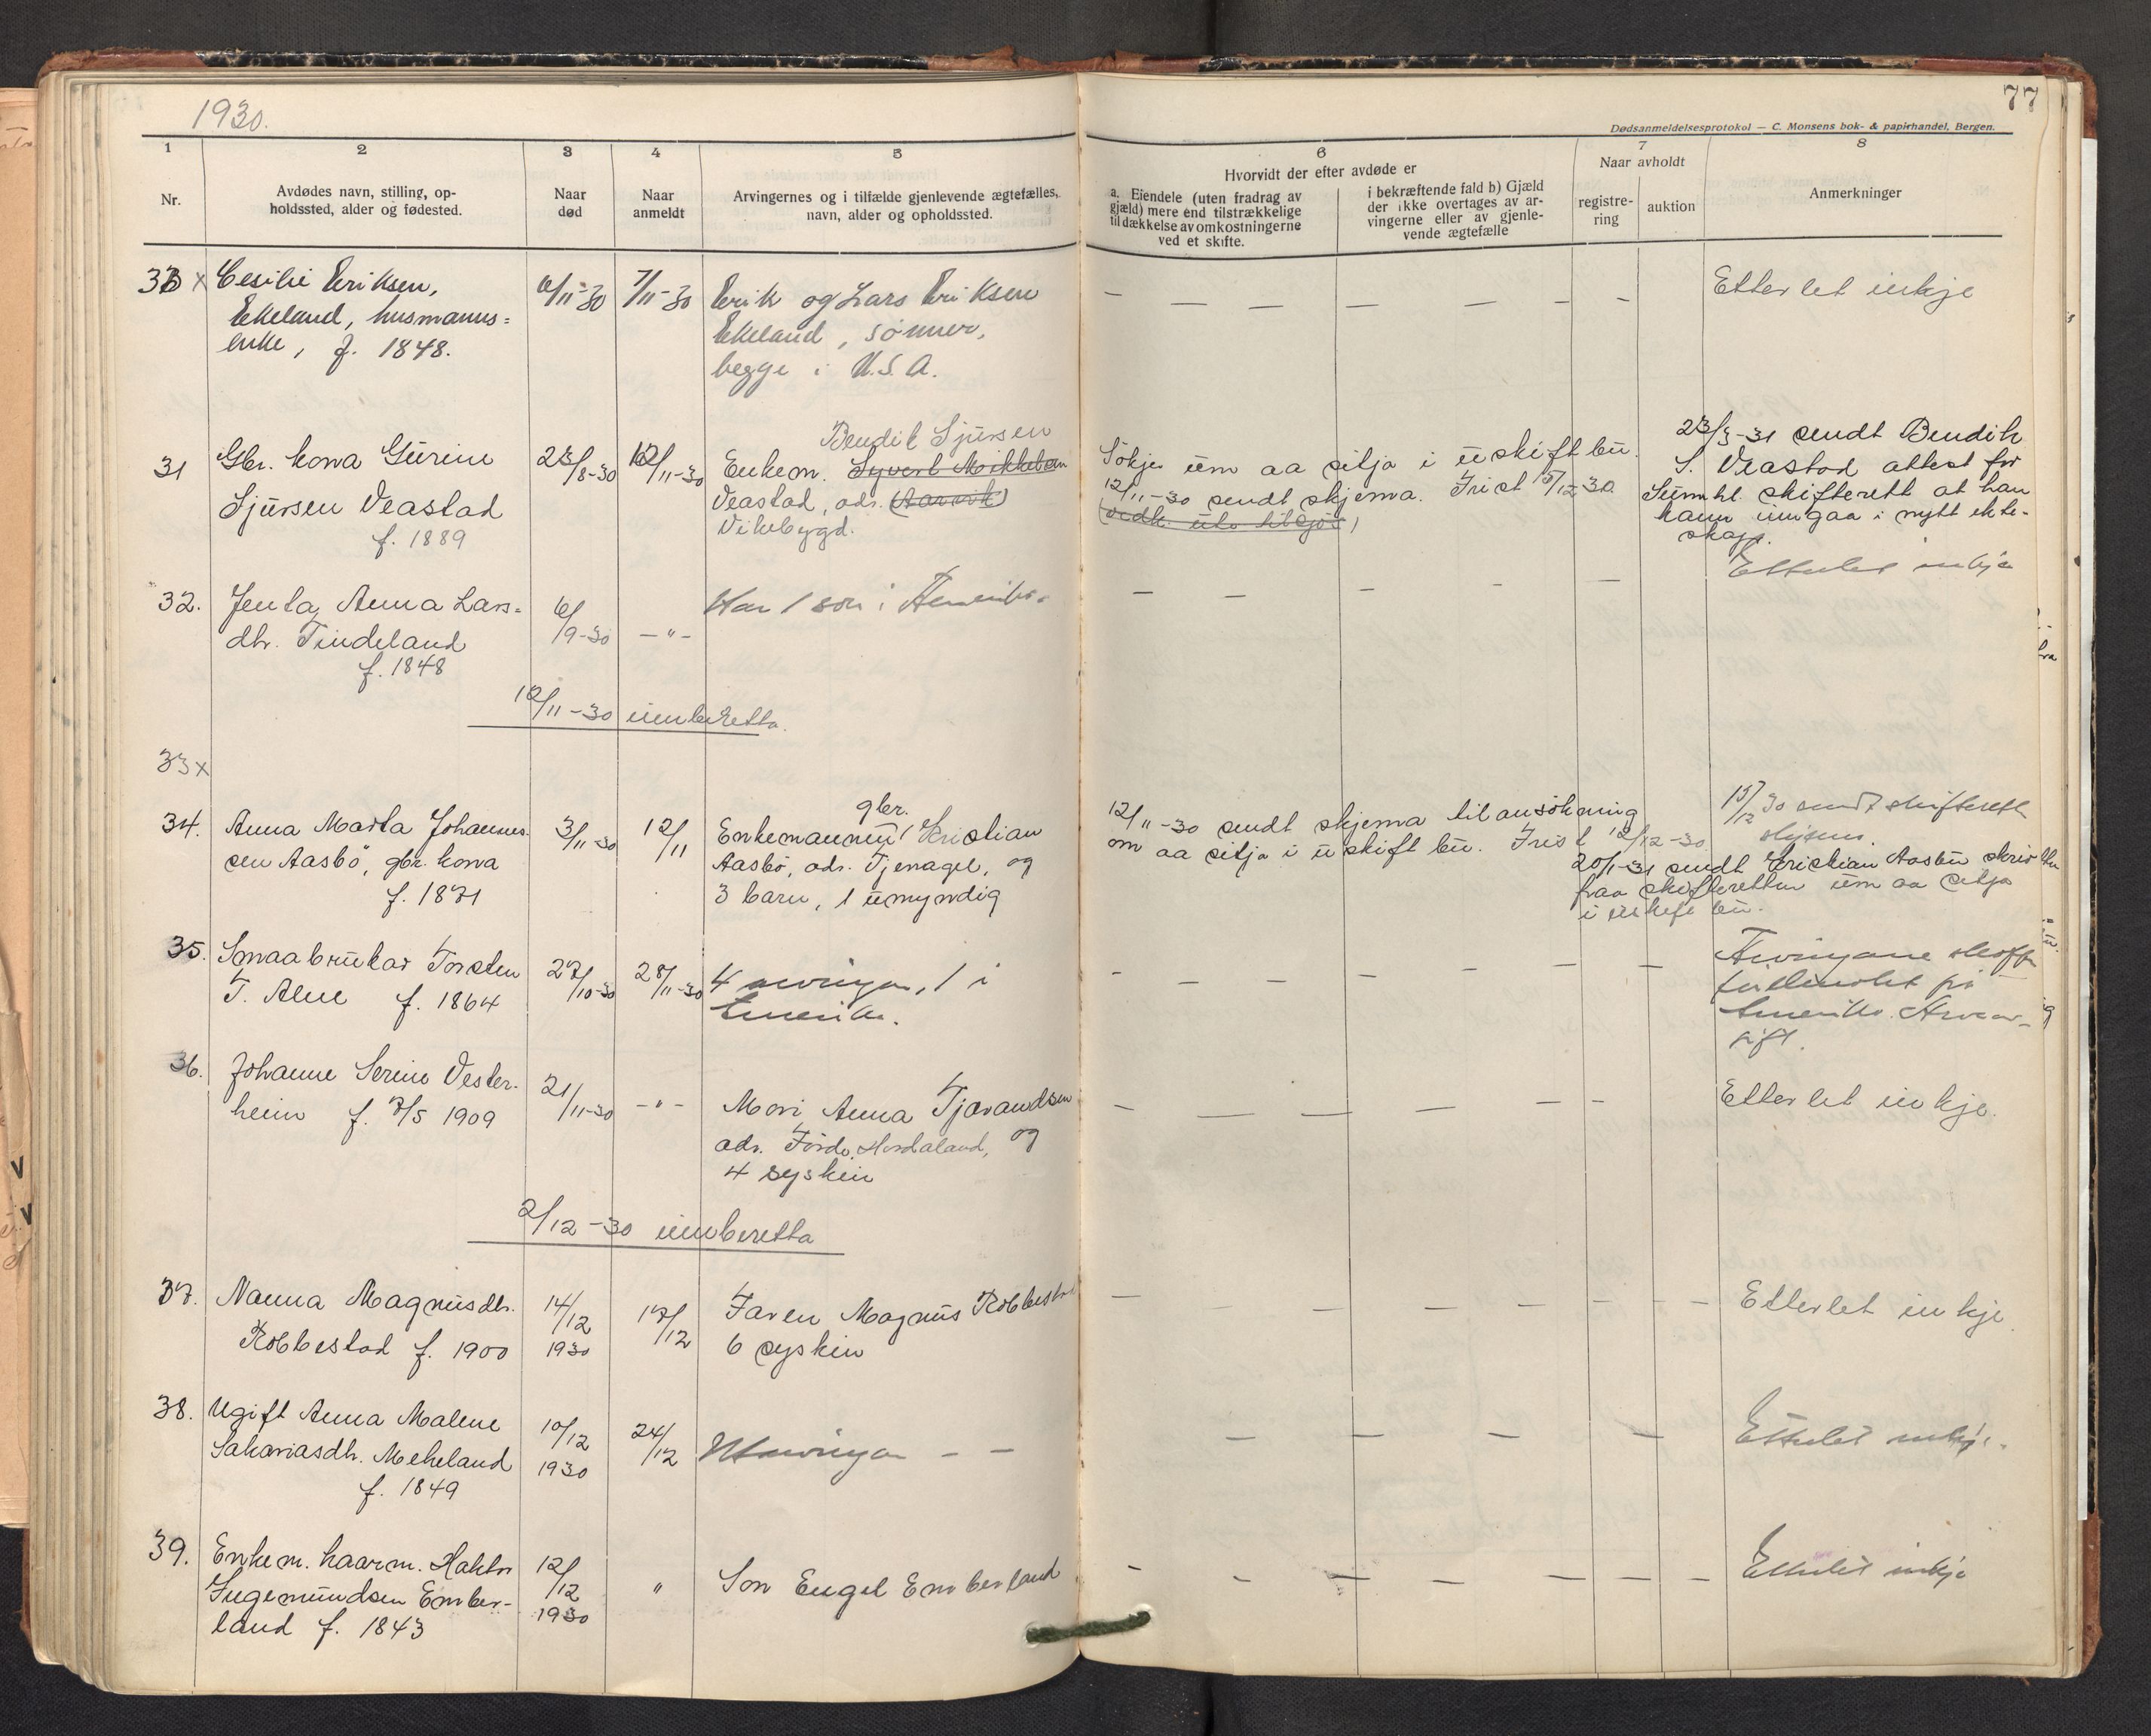 1930.
77
Dødsanmeldelsesprotokol — C. Monsens bok- & papirhandel, Bergen.
1
Nr.
2
Avdødes navn, stilling, op-
holdssted, alder og fødested.
3
Naar
død
4
Naar
anmeldt
5
Arvingernes og i tilfælde gjenlevende ægtefælles,
navn, alder og opholdssted.
6
Hvorvidt der efter avdøde er
a. Eiendele (uten fradrag av
gjæld) mere end tilstrækkelige
til dækkelse av omkostningerne
ved et skifte.
i bekræftende fald b) Gjæld
der ikke overtages av ar-
vingerne eller av gjenle-
vende ægtefælle
7
Naar avholdt
registre-
ring
auktion
8
Anmerkninger
x Cesilie Eriksen,
Ekeland, husmanns=
enke, f. 1848.
6/11-30
7/11-30
Erik og Lars Eriksen
Ekeland, sønner,
begge i U.S.A.
— — — — — — —
Etterlet inkje
31
Gbr. kona Gurine
Sjursen Veastad
f. 1889
23/8-30
12/11-30
Bendik Sjursen
Enkem. Syvert Mikkelsen
Veastad, adr. (Aarvik)
Vikebygd.
Søkje um aa sitja i uskift bu.
12/11-30 sendt skjema. Frist 15/12 30.
23/3-31 sendt Bendik
S. Veastad attest frå
Sunnhl. skifterett at han
kann inngaa i nytt ekte-
skap.
32.
Jenta Anna Lars=
dtr. Tindeland
f. 1848
6/9-30
— " -
Har 1 son i Amerika.
— — — - —
Etterlet inkje
12/11-30 innberetta.
33 x
34.
Anna Marta Johannes-
sen Aasbö, gbr. kona
f. 1871
3/11-30
12/11
gbr.
Enkemannen Kristian
Aasbö, adr. Tjernagel, og
3 barn, 1 umyndig
12/11-30 sendt skjema til ansökning
om aa sitja i uskift bu. Frist 12/12-30.
15/12 30 sendt skifterett
skjema.
20/1-31 sendt Kristian Aasbö skriv
fraa skifteretten um aa sitja
i uskift bu.
35.
Smaabrukar Torsten
T. Alne f. 1864
27/10-30
28/11-30
4 arvingar, 1 i
Amerika.
- - - — — — —
Arvingane
fullmakt frå
Amerika. Arveav-
gift.
36.
Johanne Serine Vester-
heim f. 7/5 1909
21/11-30
— " -
Mori Anna Tjerandsen
adr. Förde, Hordaland, og
4 syskin
— — — — — -
Etterlet inkje.
2/12-30 innberetta
37.
Nanna Magnusdtr.
Robbestad f. 1900
14/12
1930
17/12
Faren Magnus Robbestad
6 syskin
— - — — — - — -
Etterlet inkje.
38.
Ugift Anna Malene
Sakariasdtr. Mekeland
f. 1849
10/12
1930
24/12
Utarvingar — —
— — — —
Etterlet inkje.
39.
Enkem. kaarm. Haktor
Ingemundsen Ember-
land f. 1843
12/12
1930
"
Son Engel Emberland
- - — — — — —
Etterlet inkje